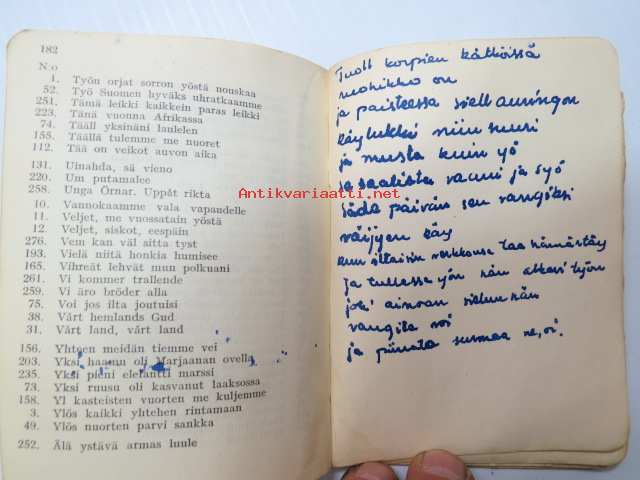 182
N:o
1. Työn orjat sorron yöstä nouskaa
52. Työ Suomen hyväks uhratkaamme
251. Tämä leikki kaikkein paras leikki
223. Tänä vuonna Afrikassa
74. Tääll yksinäni laulelen
155. Täällä tulemme me nuoret
112. Tää on veikot auvon aika
131. Uinahda, sä vieno
220. Um putamalee
258. Unga Örnar. Uppåt rikta
10. Vannokaamme vala vapaudelle
11. Veljet, me vuossatain yöstä
12. Veljet, siskot, eespäin
276. Vem kan väl sitta tyst
193. Vielä niitä honkia humisee
165. Vihreät lehvät mun polkuani
261. Vi kommer trallende
259. Vi äro bröder alla
75. Voi jos ilta joutuisi
38. Vårt hemlands Gud
31. Vårt land, vårt land
156. Yhteen meidän tiemme vei
203. Yksi haamu oli Marjaanan ovella
235. Yksi pieni elefantti marssi
73. Yksi ruusu oli kasvanut laaksossa
158. Yl kasteisten vuorten me kuljemme
3. Ylös kaikki yhtehen rintamaan
49. Ylös nuorten parvi sankka
252. Älä ystävä armas luule
Antikvariaatti.net
Tuoll korpien kätköissä
ruohikko on
ja paisteessa siell auringon
käy lukki niin suuri
ja musta kuin yö
ja saalista vaanii ja syö
päivän sen vangiksi
väijyen käy
kun siltaisin verkkonsa taa
ja tullessa yön hän alkavi työn
joki ainoan hän
vangita voi
ja surmaa